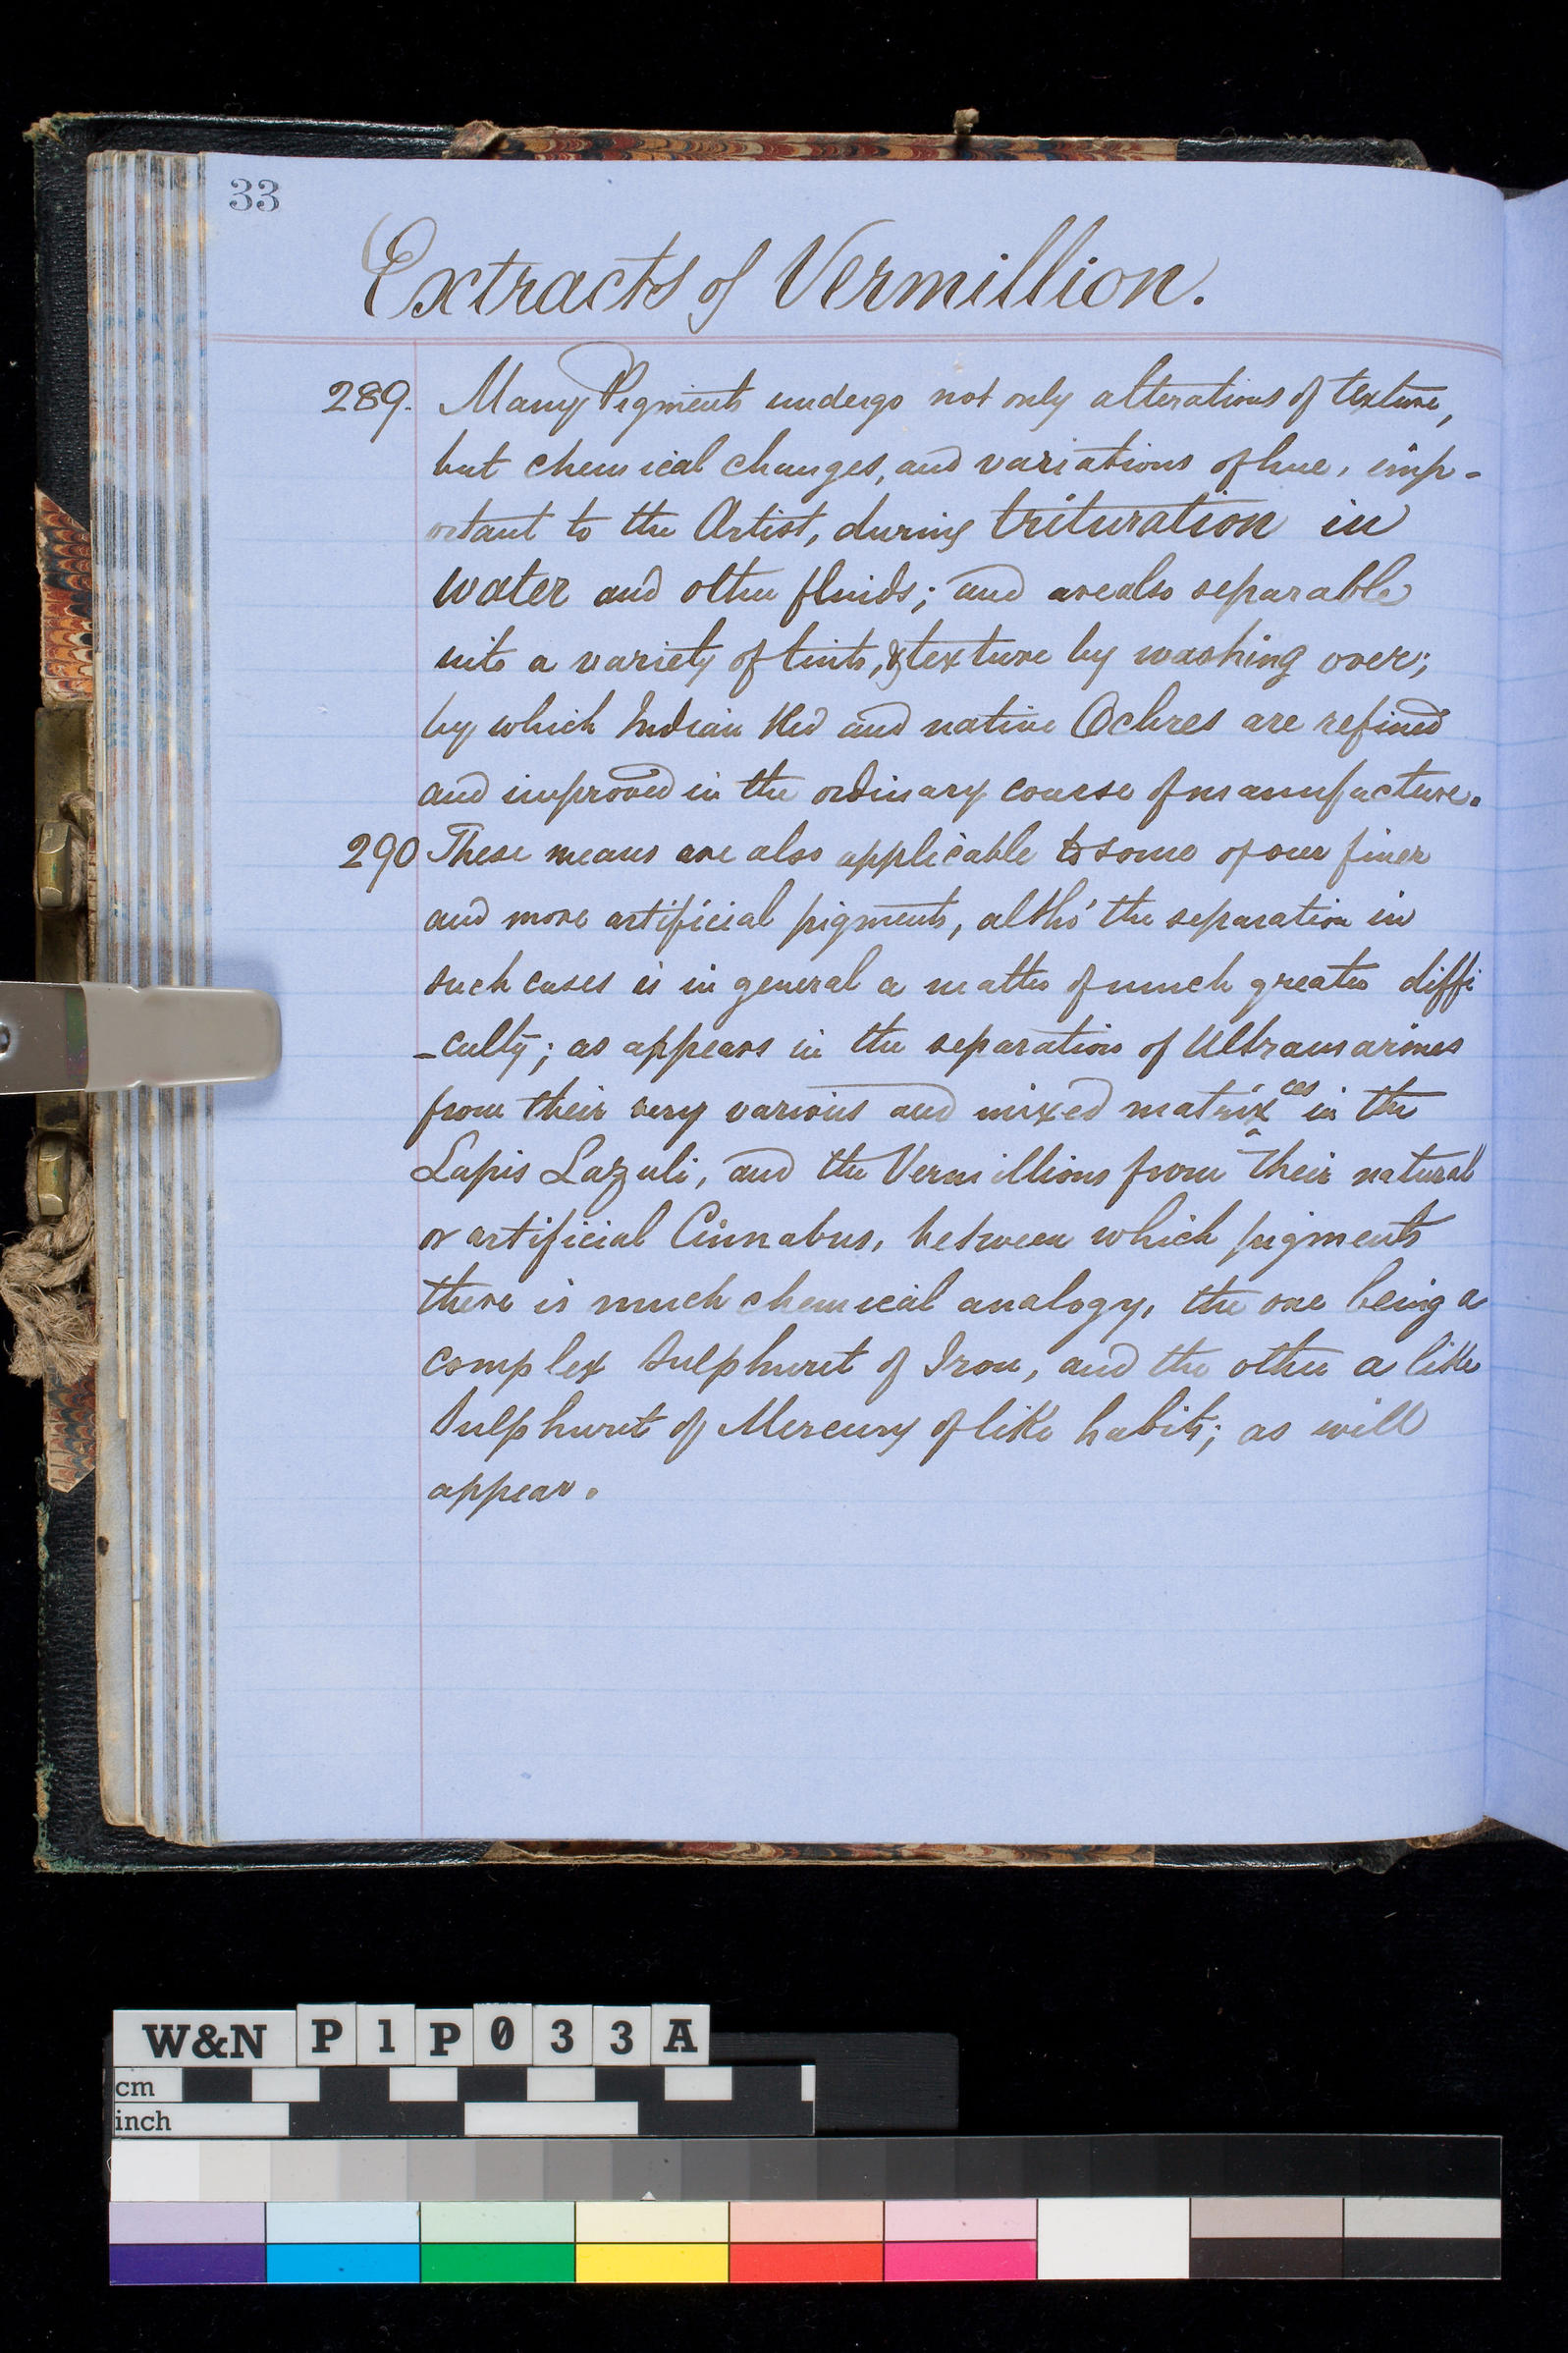 33
Extracts of Vermillion.
289. Many Pigments undergo not only alterations of texture,
but chemical changes, and variations of hue, imp-
ortant to the Artist, during trituration in
water and other fluids; and are also separable
into a variety of tints, & texture by washing over;
by which Indian Red and native Ochres are refined
and improved in the ordinary course of manufacture.
290 These means are also applicable to some of our finer
and more artificial pigments, altho' the separation in
such cases is in general a matter of much greater diffi
-culty; as appears in the separation of Ultramarines
from their very various and mixed matrix^ces in the
Lapis Lazuli, and the Vermillions from their natural
or artificial Cinnabus, between which pigments
there is much chemical analogy, the one being a
complex Sulphuret of Iron, and the other a like
Sulphuret of Mercury of like habits; as will
appear.
W&N P1P033A
cm
inch